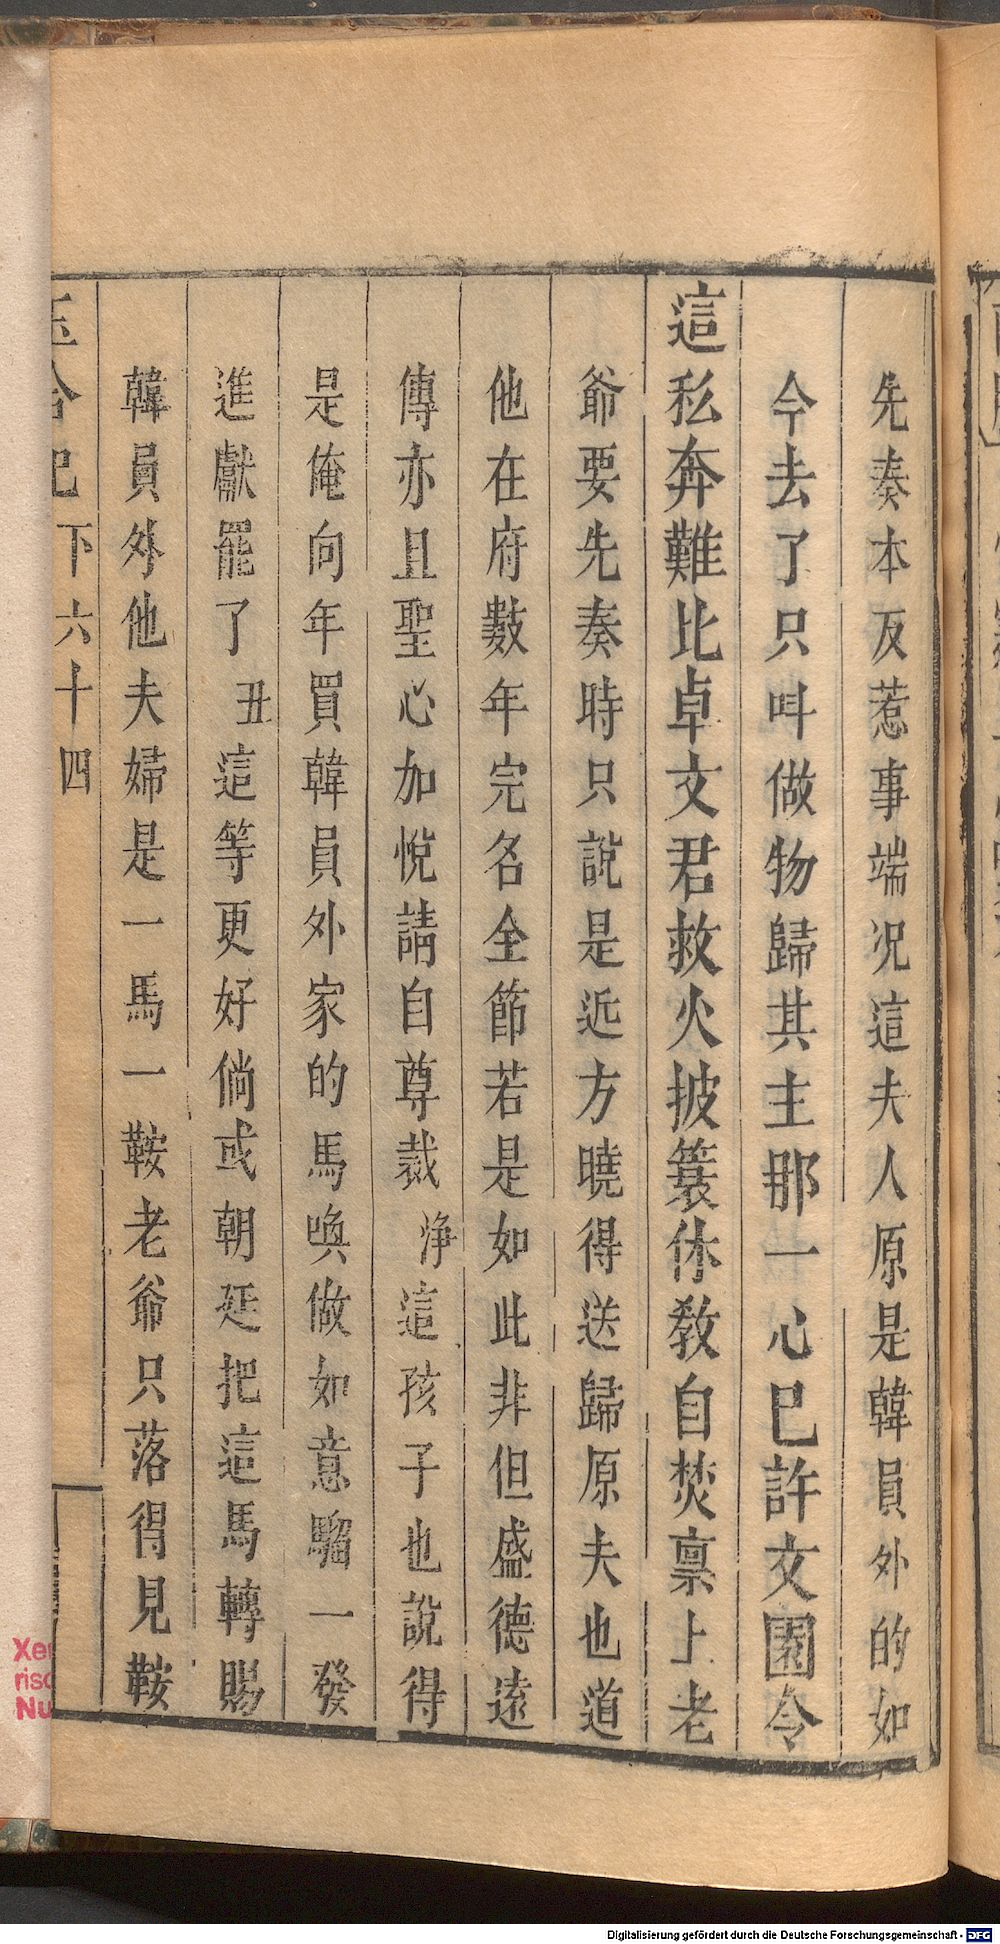 先奏本反惹事端況這夫人原是韓員外的如
今去了只呌做物歸其主那一心巳許文園令
這私奔難比卓文君救火披簑休教自焚禀上老
爺要先奏時只説是近方曉得送歸原夫也道
他在府數年完名全節若是如此非但盛德遠
傳亦且聖心加悅請自尊裁 淨這孩子也說得
是俺向年買韓員外家的馬喚做如意騮一發
進獻罷了 丑這等更好倘或朝廷把這馬轉賜
韓員外他夫婦是一馬一鞍老爺只落得見鞍
玉合記下六十四
Digitalisierung gefördert durch die Deutsche Forschungsgemeinschaft - DFG